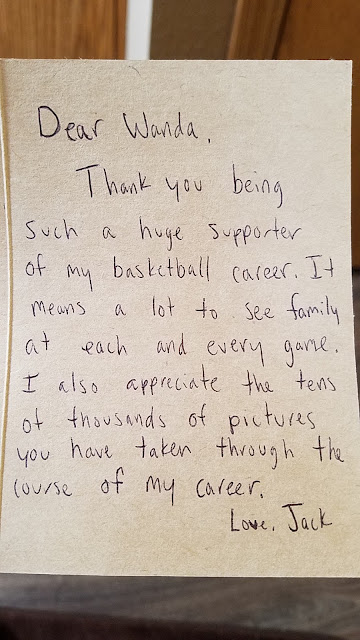 Dear Wanda,
Thank you being
such a huge supporter
of my basketball career. It
means a lot to see family
at each and every game.
I also appreciate the tens
of thousands of pictures
you have taken through the
course of my career.
Love, Jack